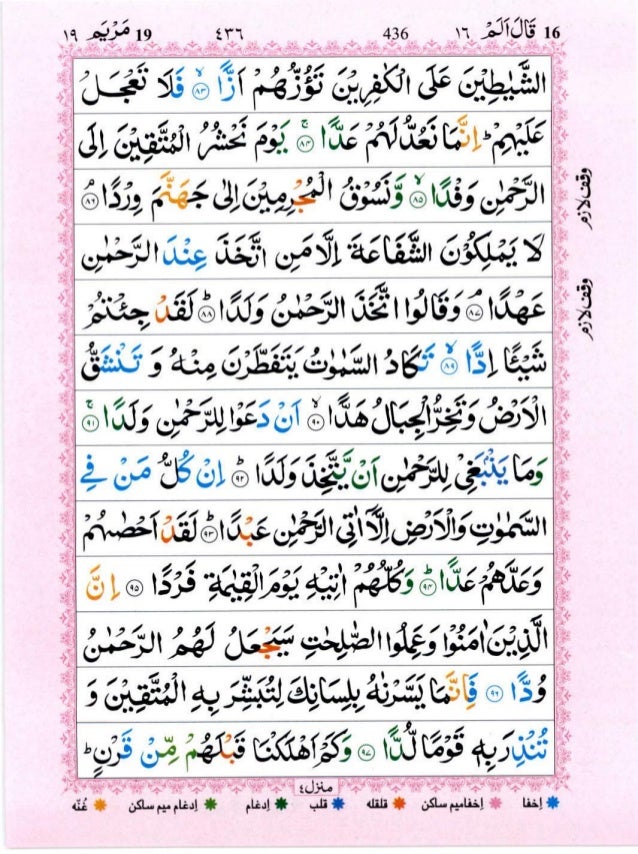 19 مَرْيَم ١٩ ٤٣٦ 436 قَالَ اَلَمْ ١٦ 16
الشَّيٰطِيْنَ عَلَى الْكٰفِرِيْنَ تَؤُزُّهُمْ اَزًّا ۙ‏﴿۸۳﴾ فَلَا تَعْجَلْ
عَلَيْهِمْ ؕ اِنَّمَا نَعُدُّ لَهُمْ عَدًّا ۚ‏﴿۸۴﴾ يَوْمَ نَحْشُرُ الْمُتَّقِيْنَ اِلَى
الرَّحْمٰنِ وَفْدًا ۙ‏﴿۸۵﴾ وَّنَسُوْقُ الْمُجْرِمِيْنَ اِلٰى جَهَنَّمَ وِرْدًا ۘ‏﴿۸۶﴾
وقف لازم
لَا يَمْلِكُوْنَ الشَّفَاعَةَ اِلَّا مَنِ اتَّخَذَ عِنْدَ الرَّحْمٰنِ
عَهْدًا ۘ‏﴿۸۷﴾ وَقَالُوا اتَّخَذَ الرَّحْمٰنُ وَلَدًا ؕ‏﴿۸۸﴾ لَقَدْ جِئْتُمْ
وقف لازم
شَيْئًا اِدًّا ۙ‏﴿۸۹﴾ تَكَادُ السَّمٰوٰتُ يَتَفَطَّرْنَ مِنْهُ وَ تَنْشَقُّ
الْاَرْضُ وَتَخِرُّ الْجِبَالُ هَدًّا ۙ‏﴿۹۰﴾ اَنْ دَعَوْا لِلرَّحْمٰنِ وَلَدًا ۚ‏﴿۹۱﴾
وَمَا يَنْۢبَغِىْ لِلرَّحْمٰنِ اَنْ يَّتَّخِذَ وَلَدًا ؕ‏﴿۹۲﴾ اِنْ كُلُّ مَنْ فِى
السَّمٰوٰتِ وَالْاَرْضِ اِلَّاۤ اٰتِى الرَّحْمٰنِ عَبْدًا ؕ‏﴿۹۳﴾ لَقَدْ اَحْصٰٮهُمْ
وَعَدَّهُمْ عَدًّا ؕ‏﴿۹۴﴾ وَكُلُّهُمْ اٰتِيْهِ يَوْمَ الْقِيٰمَةِ فَرْدًا ‏﴿۹۵﴾ اِنَّ
الَّذِيْنَ اٰمَنُوْا وَعَمِلُوا الصّٰلِحٰتِ سَيَجْعَلُ لَهُمُ الرَّحْمٰنُ
وُدًّا ‏﴿۹۶﴾ فَاِنَّمَا يَسَّرْنٰهُ بِلِسَانِكَ لِتُبَشِّرَ بِهِ الْمُتَّقِيْنَ وَ
تُنْذِرَ بِهٖ قَوْمًا لُّدًّا ‏﴿۹۷﴾ وَكَمْ اَهْلَكْنَا قَبْلَهُمْ مِّنْ قَرْنٍ ؕ
منزل ٤
اِخفا اِخفامیم ساکن قلقلہ قلب اِدغام اِدغام میم ساکن غُنّہ